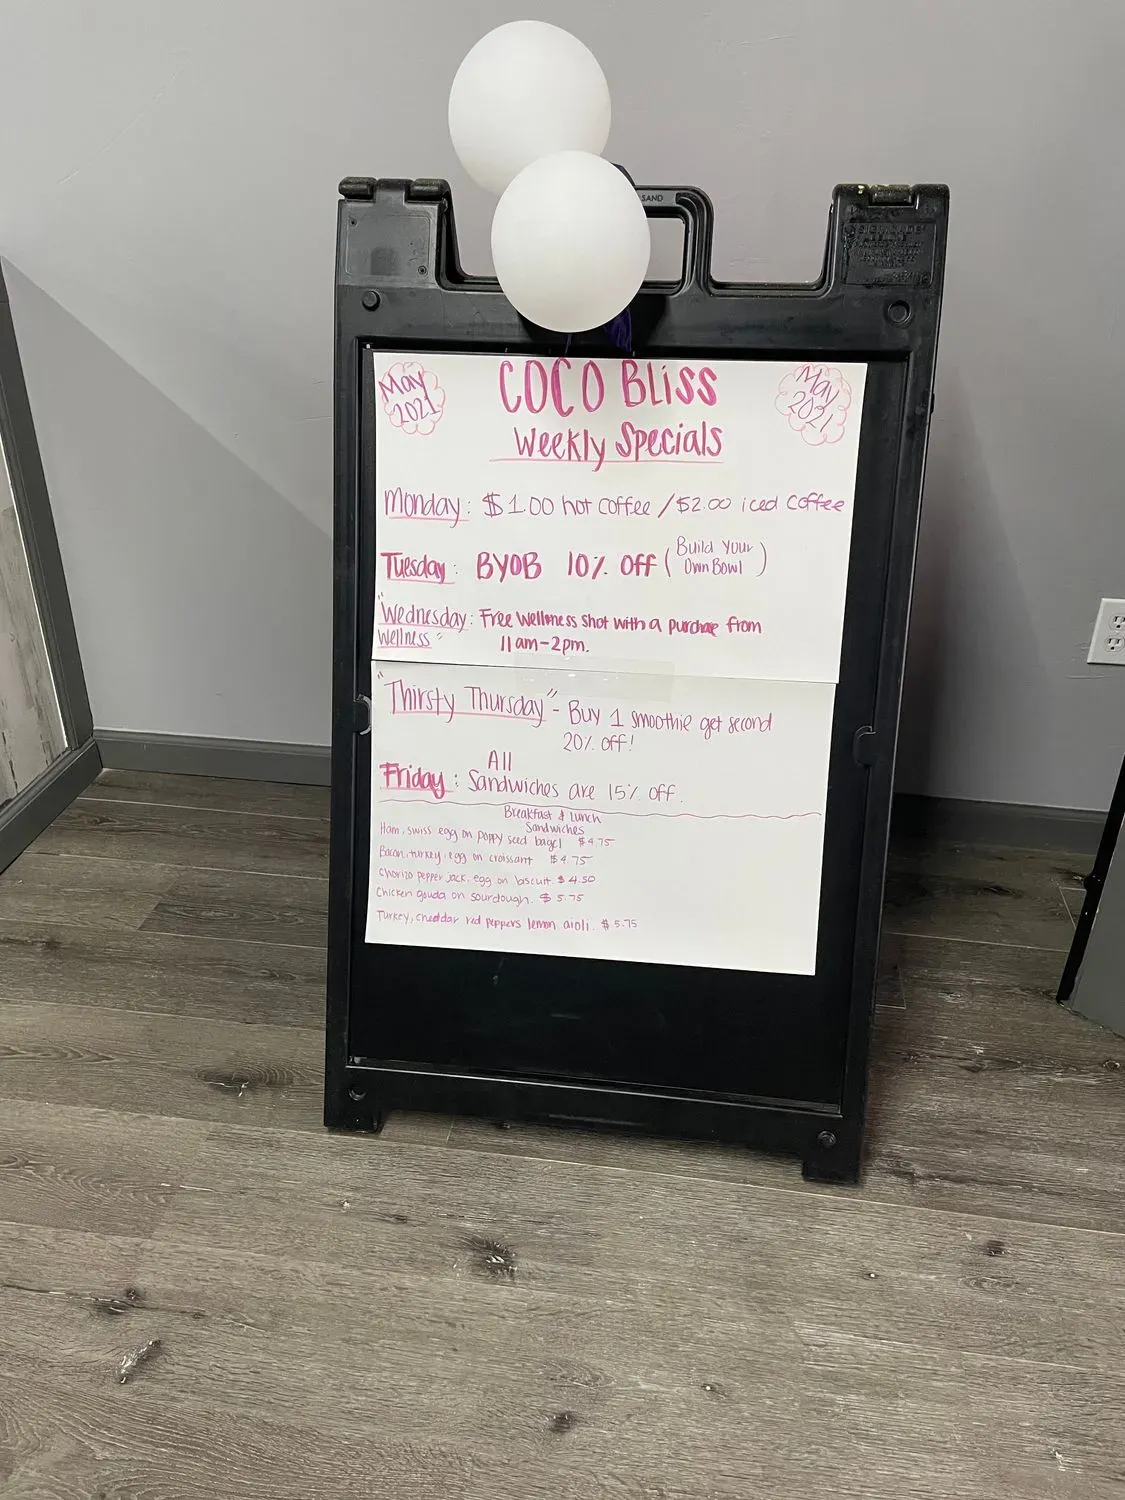 SAND
May
2021
COCO Bliss
May
2021
Weekly Specials
Monday: $1.00 hot coffee / $2.00 iced coffee
Tuesday: BYOB 10% Off (Build Your
Own Bowl)
"Wednesday: Free Wellness Shot with a purchase from
Wellness" 11am-2pm.
"Thirsty Thursday" - Buy 1 smoothie get second
20% off!
All
Friday: Sandwiches are 15% off.
Breakfast & Lunch
Sandwiches
Ham, swiss egg on poppy seed bagel $4.75
Bacon, turkey, egg on croissant $4.75
Chorizo pepper jack, egg on biscuit $4.50
Chicken gouda on sourdough. $5.75
Turkey, cheddar red peppers lemon aioli. $5.75